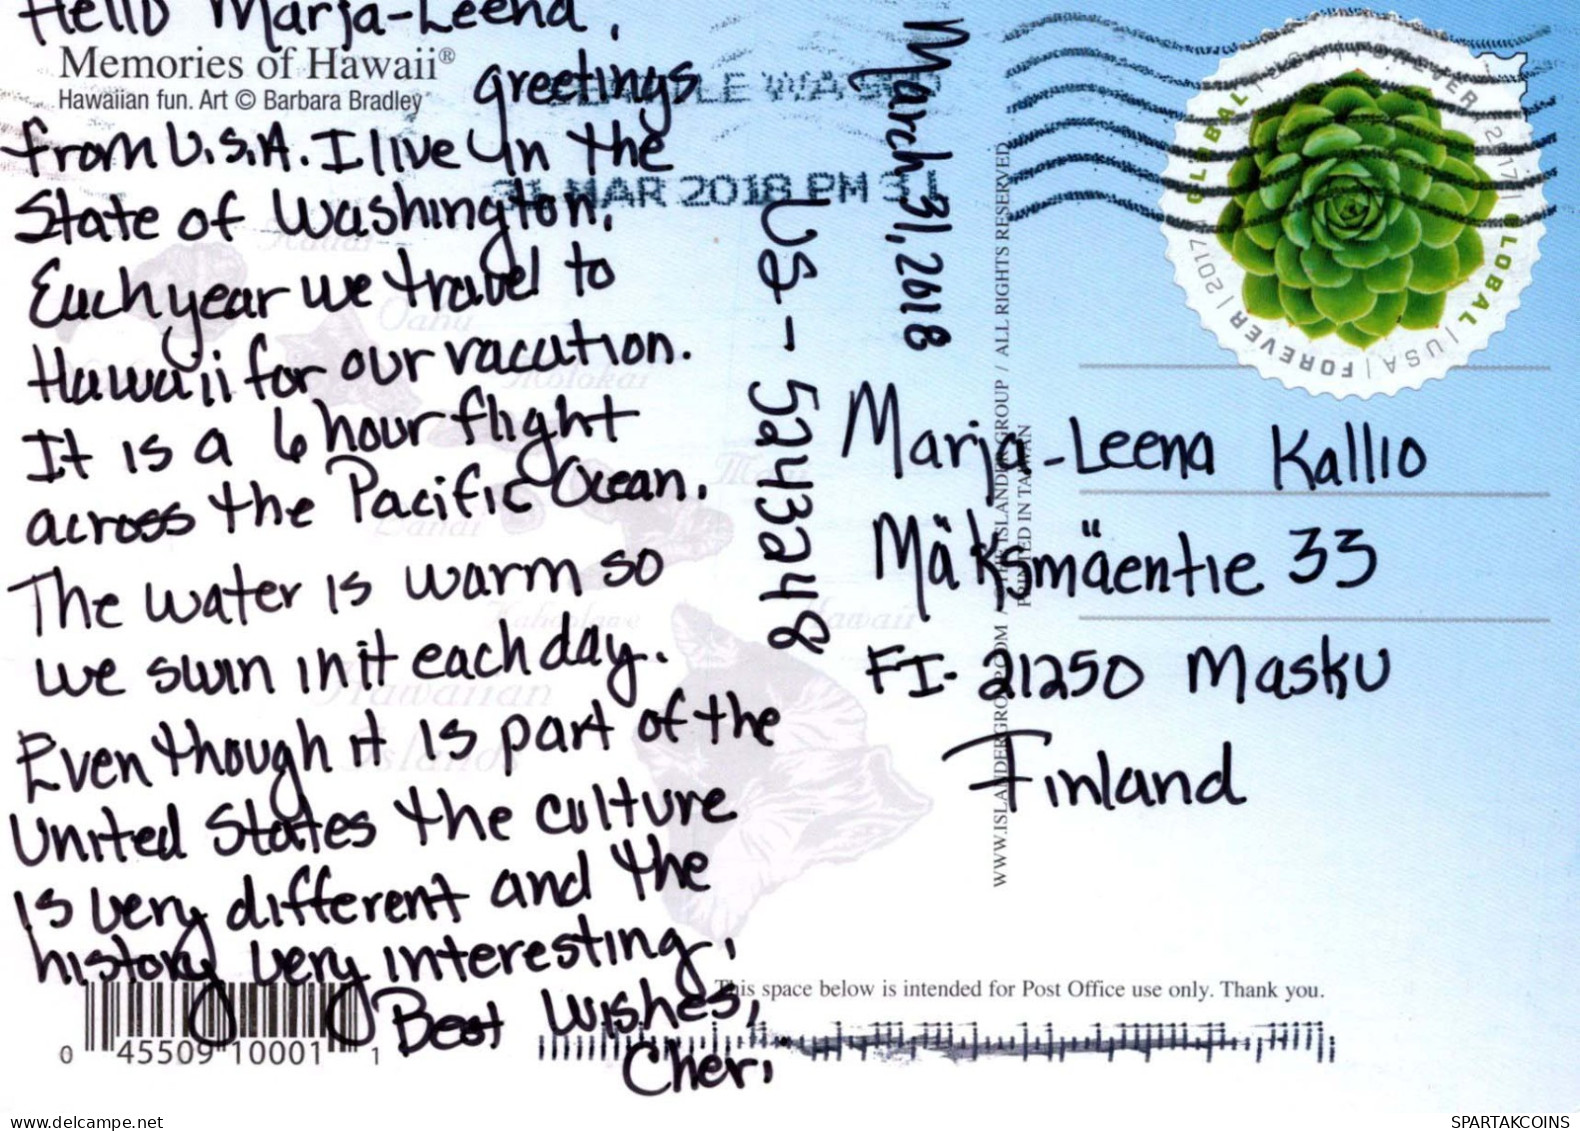 Hello Marja-Leena,
Memories of Hawaii®
Hawaiian fun. Art © Barbara Bradley
greetings
from U.S.A. I live in the
State of Washington.
Each year we travel to
Hawaii for our vacation.
It is a 6 hour flight
across the Pacific Ocean.
The water is warm so
we swim in it each day.
Even though it is part of the
United States the culture
is very different and the
history very interesting.
Best Wishes,
Cheri
0 45509 10001 1
31 MAR 2018 PM
US-5243248
March 31, 2018
WWW.ISLANDERGROUP.COM / THE ISLANDER GROUP / ALL RIGHTS RESERVED
PRINTED IN TAIWAN
GLOBAL | USA | FOREVER | 2017 | GLOBAL | USA | FOREVER | 2017
Marja-Leena Kallio
Mäksmäentie 33
FI-21250 Masku
Finland
Oahu
Molokai
Maui
Lanai
Kahoolawe
Hawaii
Hawaiian
Islands
This space below is intended for Post Office use only. Thank you.
www.delcampe.net
SPARTAKCOINS